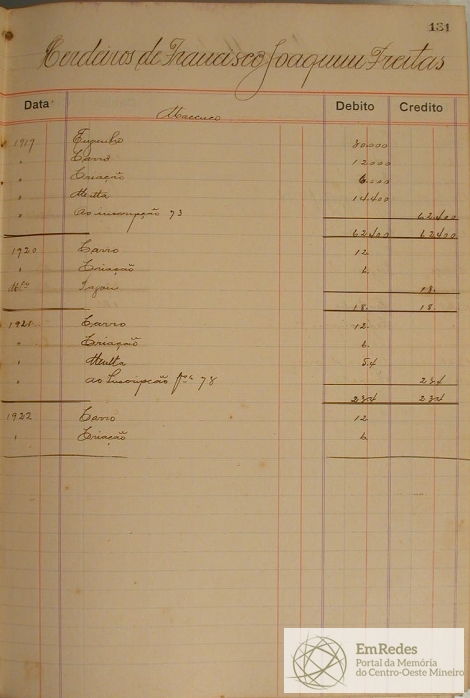 131
Cerdeiros de Francisco Joaquim Freitas
Data Debito Credito
Maccuco
1917 Engenho 30.000
" Carro 12.000
" Criação 6.000
" Multa 14.400
" ao inscrupção 73 62400
62400 62400
1920 Carro 12
" Criação 6
18
18 18
1921 Carro 12
" Criação 6
" Multa 5.4
" ao Inscripcão fls 78 234
234 234
1922 Carro 12
" Criação 6
EmRedes
Portal da Memória
do Centro-Oeste Mineiro